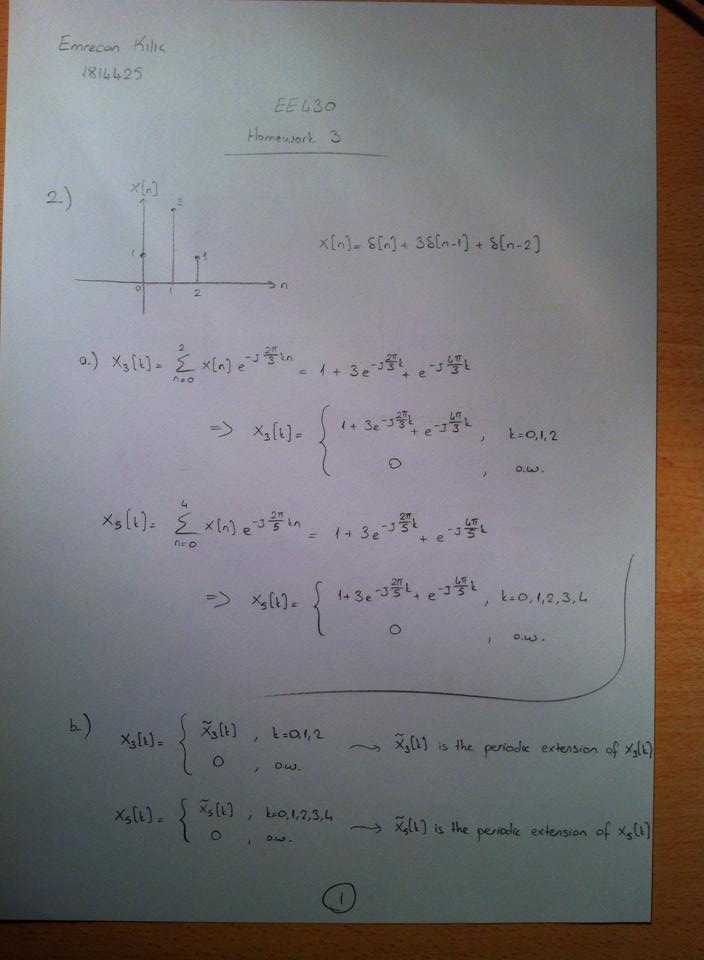 Emrecan Kılıç
1814425
EE430
Homework 3
2.)
x[n]
3
1
1
0
1
2
n
x[n] = δ[n] + 3δ[n-1] + δ[n-2]
a.) X₃[k] = Σ_{n=0}^{2} x[n] e^{-J 2π/3 kn} = 1 + 3e^{-J 2π/3 k} + e^{-J 4π/3 k}
=> X₃[k] = { 1 + 3e^{-J 2π/3 k} + e^{-J 4π/3 k} , k=0,1,2
0 , o.w.
X₅[k] = Σ_{n=0}^{4} x[n] e^{-J 2π/5 kn} = 1 + 3e^{-J 2π/5 k} + e^{-J 4π/5 k}
=> X₅[k] = { 1 + 3e^{-J 2π/5 k} + e^{-J 4π/5 k} , k=0,1,2,3,4
0 , o.w.
b.) X₃[k] = { X̃₃[k] , k=0,1,2 → X̃₃[k] is the periodic extension of X₃[k]
0 , o.w.
X₅[k] = { X̃₅[k] , k=0,1,2,3,4 → X̃₅[k] is the periodic extension of X₅[k]
0 , o.w.
1